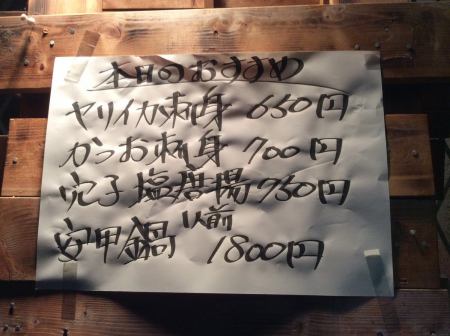 本日のおすすめ
ヤリイカ刺身 650円
かつお刺身 700円
穴子塩唐揚 950円
安甲鍋 1人前 1800円